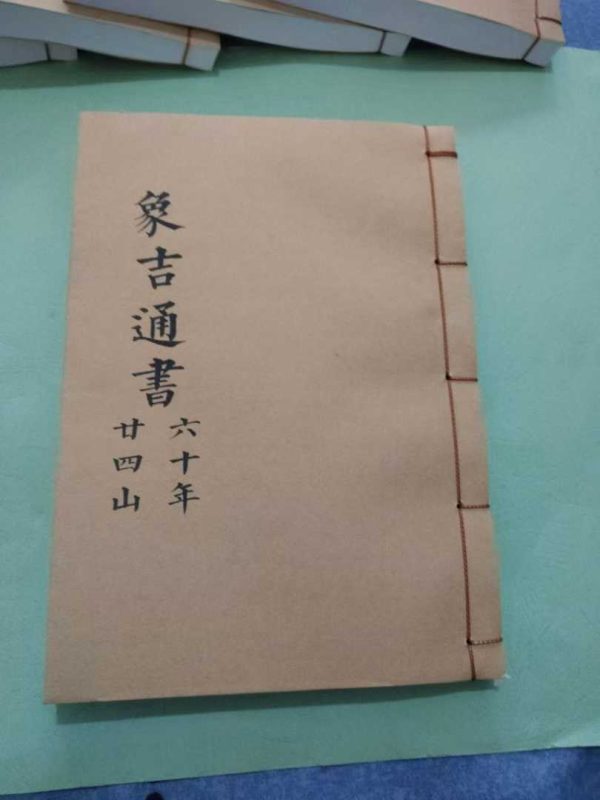 象吉通書
六十年
廿四山